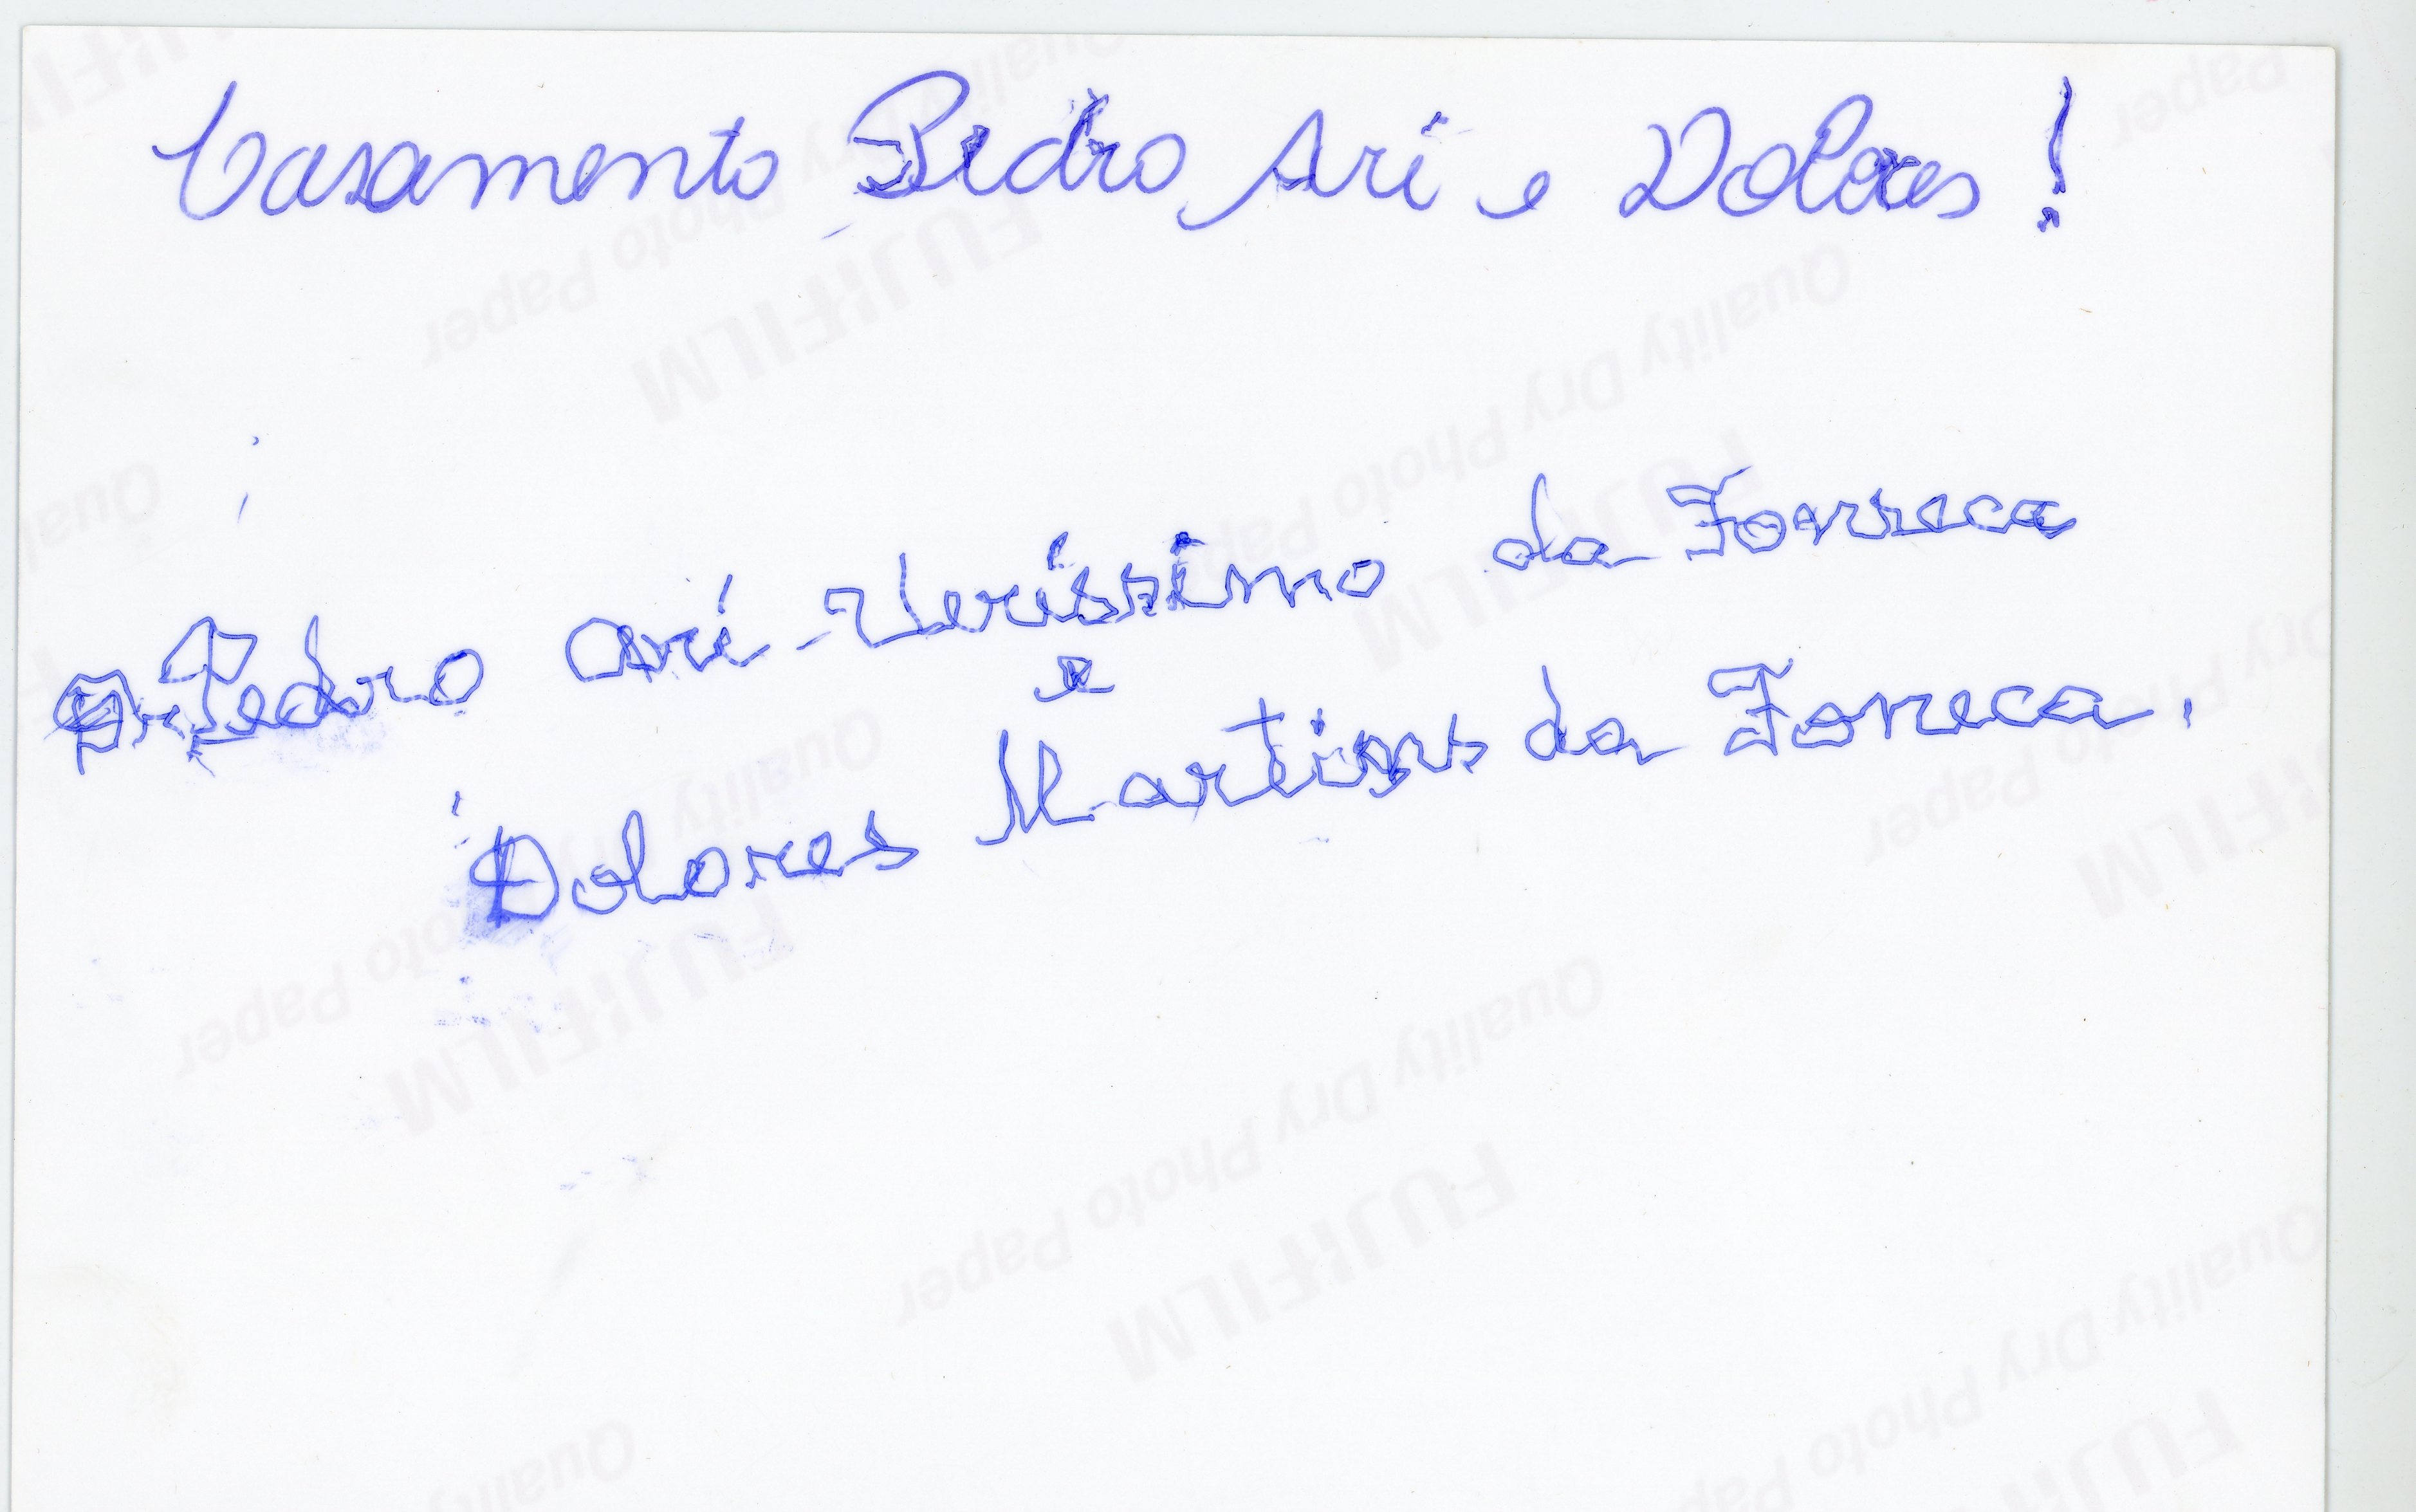 Casamento Pedro Ari e Dolores!
Pedro Ari Veríssimo da Fonseca
e
Dolores Martins da Foneca.
FUJIFILM
Quality Dry Photo Paper